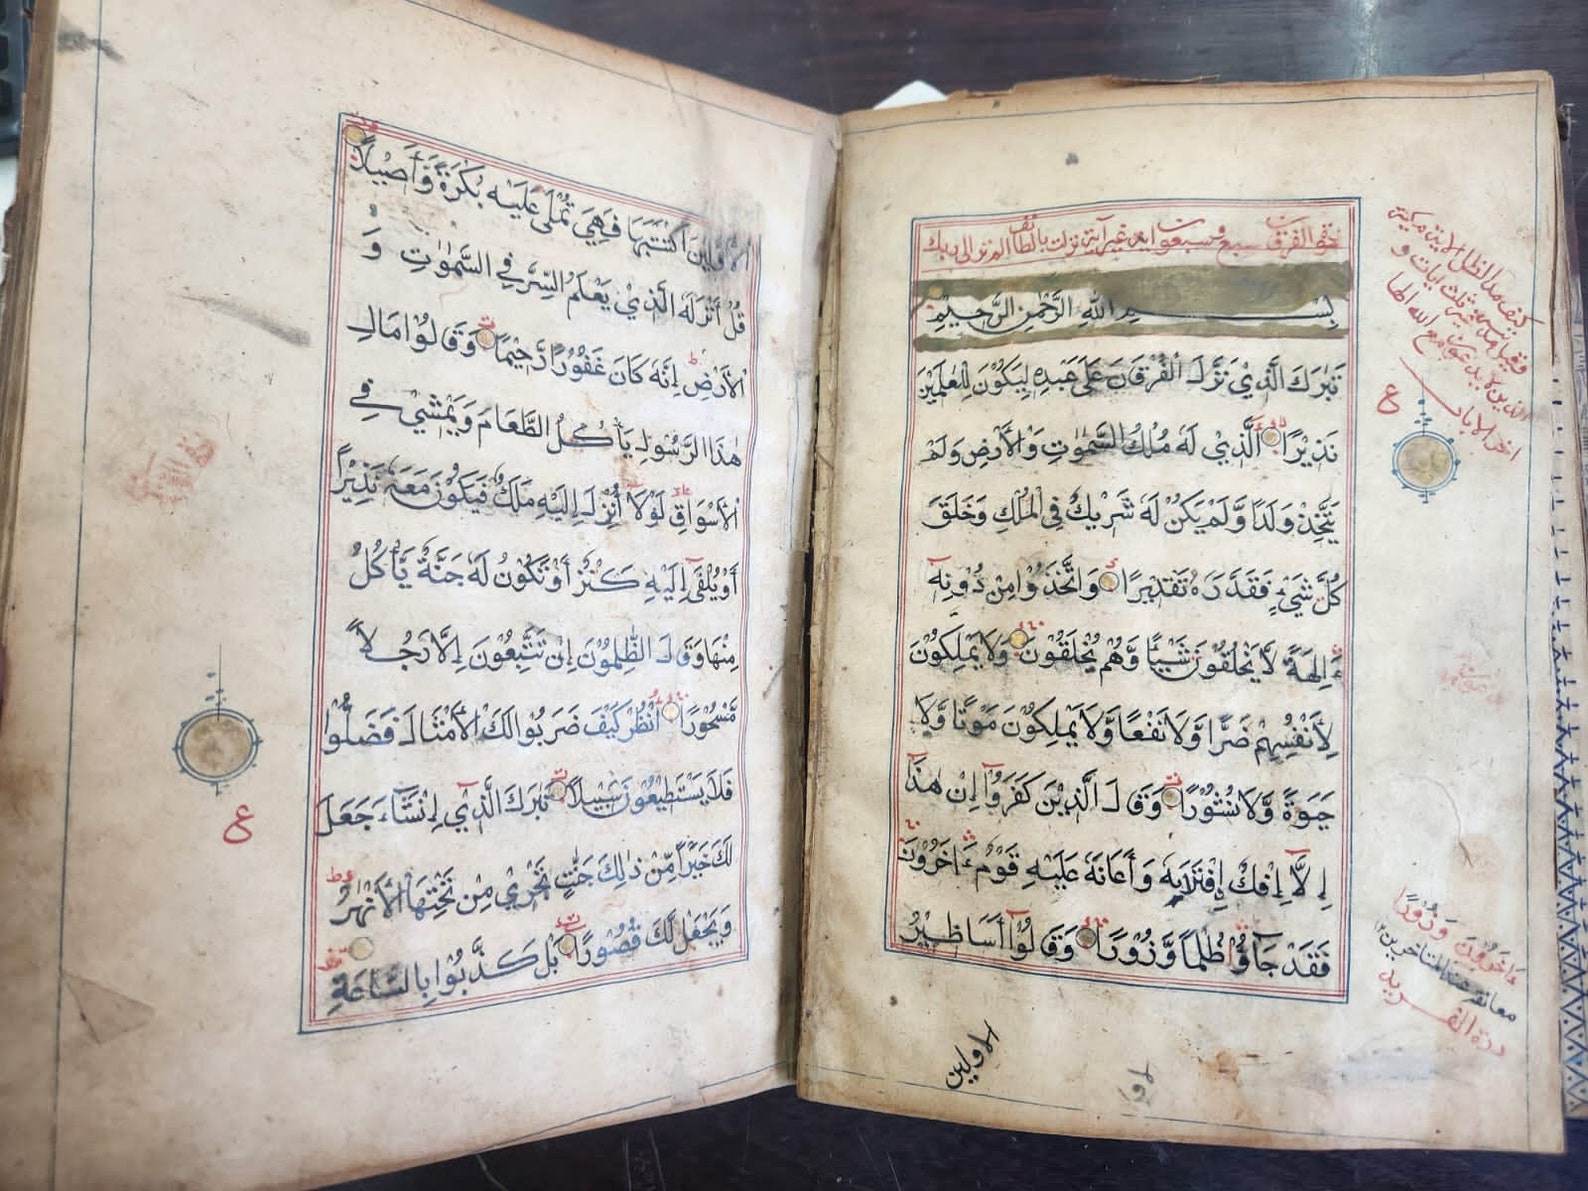 بِسْمِ اللهِ الرَّحْمٰنِ الرَّحِيْمِ
تَبٰرَكَ الَّذِيْ نَزَّلَ الْفُرْقَانَ عَلٰى عَبْدِهٖ لِيَكُوْنَ لِلْعٰلَمِيْنَ
نَذِيْرًا الَّذِيْ لَهٗ مُلْكُ السَّمٰوٰتِ وَالْاَرْضِ وَلَمْ
يَتَّخِذْ وَلَدًا وَّلَمْ يَكُنْ لَهٗ شَرِيْكٌ فِي الْمُلْكِ وَخَلَقَ
كُلَّ شَيْءٍ فَقَدَّرَهٗ تَقْدِيْرًا وَاتَّخَذُوْا مِنْ دُوْنِهٖ
ءَالِهَةً لَا يَخْلُقُوْنَ شَيْـًٔا وَّهُمْ يُخْلَقُوْنَ وَلَا يَمْلِكُوْنَ
لِاَنْفُسِهِمْ ضَرًّا وَّلَا نَفْعًا وَّلَا يَمْلِكُوْنَ مَوْتًا وَّلَا
حَيٰوةً وَّلَا نُشُوْرًا وَقَالَ الَّذِيْنَ كَفَرُوْٓا اِنْ هٰذَآ
اِلَّآ اِفْكٌ اِفْتَرٰىهُ وَاَعَانَهٗ عَلَيْهِ قَوْمٌ ءَاخَرُوْنَ
فَقَدْ جَآءُوْ ظُلْمًا وَّزُوْرًا وَقَالُوْٓا اَسَاطِيْرُ
الاولين
ءَاخَرُوْنَ وَزُوْرًا
معانقه عند المتاخرين
ع
الْاَوَّلِيْنَ اكْتَتَبَهَا فَهِيَ تُمْلٰى عَلَيْهِ بُكْرَةً وَّاَصِيْلًا
قُلْ اَنْزَلَهُ الَّذِيْ يَعْلَمُ السِّرَّ فِي السَّمٰوٰتِ وَ
الْاَرْضِ اِنَّهٗ كَانَ غَفُوْرًا رَّحِيْمًا وَقَالُوْا مَالِ
هٰذَا الرَّسُوْلِ يَاْكُلُ الطَّعَامَ وَيَمْشِيْ فِي
الْاَسْوَاقِ لَوْلَآ اُنْزِلَ اِلَيْهِ مَلَكٌ فَيَكُوْنَ مَعَهٗ نَذِيْرًا
اَوْ يُلْقٰٓى اِلَيْهِ كَنْزٌ اَوْ تَكُوْنُ لَهٗ جَنَّةٌ يَّاْكُلُ
مِنْهَا وَقَالَ الظّٰلِمُوْنَ اِنْ تَتَّبِعُوْنَ اِلَّا رَجُلًا
مَّسْحُوْرًا اُنْظُرْ كَيْفَ ضَرَبُوْا لَكَ الْاَمْثَالَ فَضَلُّوْا
فَلَا يَسْتَطِيْعُوْنَ سَبِيْلًا تَبٰرَكَ الَّذِيْٓ اِنْ شَآءَ جَعَلَ
لَكَ خَيْرًا مِّنْ ذٰلِكَ جَنّٰتٍ تَجْرِيْ مِنْ تَحْتِهَا الْاَنْهٰرُ
وَيَجْعَلْ لَّكَ قُصُوْرًا بَلْ كَذَّبُوْا بِالسَّاعَةِ
ع